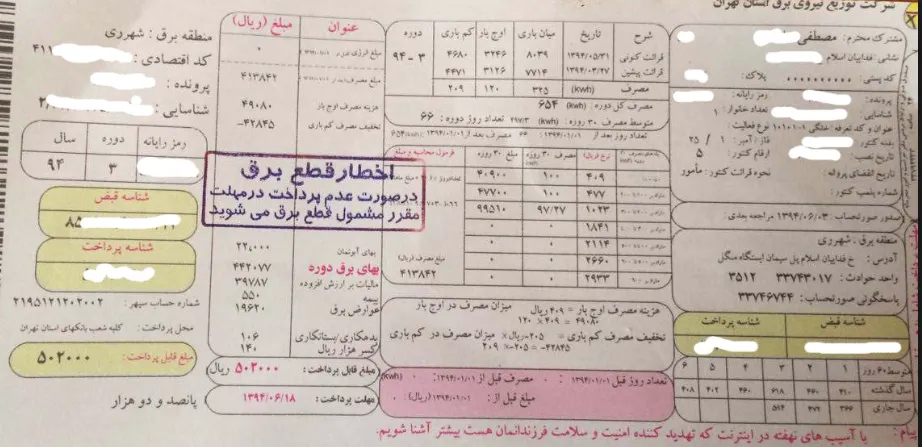 شرکت توزیع نیروی برق استان تهران
مشترک محترم: مصطفی
نشانی: فداییان اسلام
کد پستی: ۰۰۰۰۰۰۰۰۰۰
پلاک:
پرونده:
رمز رایانه:
شناسایی:
تعداد خانوار: ۱
عنوان و کد تعرفه: خانگی ۱۰۱۰-۱
نوع فعالیت:
فاز: آمپر: ۱ / ۲۵
ارقام کنتور: ۵
تاریخ نصب:
تاریخ انقضای پروانه
نحوه قرائت کنتور: مأمور
شماره پلمب کنتور:
صدور صورتحساب: ۱۳۹۴/۰۶/۰۳ مراجعه بعدی:
منطقه برق: شهرری
آدرس: خ فداییان اسلام پل سیمان ایستگاه سنگل
واحد حوادث: ۳۳۷۴۳۰۱۷ ۳۵۱۲
پاسخگوئی صورتحساب: ۳۳۷۴۶۷۴۴
شناسه قبض شناسه پرداخت
متوسط ۶۰ روز ۱ ۲ ۳ ۴ ۵ ۶
سال گذشته ۴۱۰ ۶۱۸ ۴۶۰ ۴۰۲ ۴۶۰ ۴۰۸
سال جاری ۳۶۶ ۴۷۲ ۵۱۴
شرح تاریخ میان باری اوج بار کم باری دوره
قرائت کنونی ۱۳۹۴/۰۵/۳۱ ۸۰۳۹ ۳۲۴۶ ۴۶۸۰ ۹۴-۳
قرائت پیشین ۱۳۹۴/۰۳/۲۷ ۷۷۱۴ ۳۱۲۶ ۴۴۷۱
مصرف (kwh) ۳۲۵ ۱۲۰ ۲۰۹
مصرف کل دوره: (kwh) ۶۵۴
متوسط مصرف ۳۰ روز: (kwh) ۲۹۷/۳ تعداد روز دوره: ۶۶
تعداد روز بعد از ۱۳۹۴/۰۱/۰۱: ۶۶ مصرف بعد از ۱۳۹۴/۰۱/۰۱: (kwh) ۶۵۴
نرخ (ریال) مصرف ۳۰ روز: (kwh) مبلغ ۳۰ روز: فرمول محاسبه
۴۰۹ ۱۰۰ ۴۰۹۰۰
۴۷۷ ۱۰۰ ۴۷۷۰۰
۱۰۲۳ ۹۷/۲۷ ۹۹۵۱۰
۱۸۴۱ ۰ ۰
۲۱۱۴ ۰ ۰
۲۶۶۰ ۰ ۰
۲۹۳۳ ۰ ۰
مبلغ مصرف (ریال)
۴۱۳۸۴۲
هزینه مصرف اوج بار = ۴۰۹ ریال× میزان مصرف در اوج بار
۱۲۰ × ۴۰۹ = ۴۹۰۸۰
تخفیف مصرف کم باری = ۲۰۵-ریال× میزان مصرف در کم باری
۲۰۹ ×-۲۰۵ = -۴۲۸۴۵
تعداد روز قبل از ۱۳۹۴/۰۱/۰۱: ۰ مصرف قبل از ۱۳۹۴/۰۱/۰۱: ۰ (kwh)
مبلغ قبل از ۱۳۹۴/۰۱/۰۱ (ریال): ۰
عنوان مبلغ (ریال)
۰
۴۱۳۸۴۲
هزینه مصرف اوج بار ۴۹۰۸۰
تخفیف مصرف کم باری -۴۲۸۴۵
اخطار قطع برق
درصورت عدم پرداخت درمهلت
مقرر مشمول قطع برق می شوید
بهای آبونمان ۲۲,۰۰۰
بهای برق دوره ۴۴۲۰۷۷
مالیات بر ارزش افزوده ۳۹۷۸۷
بیمه ۵۵۰
عوارض برق ۱۹۶۲۰
بدهکاری/بستانکاری ۱۰۶
کسر هزار ریال ۱۴۰
مبلغ قابل پرداخت: ۵۰۲۰۰۰ ریال
مهلت پرداخت: ۱۳۹۴/۰۶/۱۸
منطقه برق: شهرری
کد اقتصادی: ۴۱۱
پرونده:
شناسایی:
رمز رایانه دوره سال
۳ ۹۴
شناسه قبض
۸۵
شناسه پرداخت
شماره حساب سپهر:
۲۱۹۵۱۲۱۲۰۲۰۰۲
محل پرداخت: کلیه شعب بانکهای استان تهران
مبلغ قابل پرداخت: ۵۰۲۰۰۰
پانصد و دو هزار
پیام: با آسیب های نهفته در اینترنت که تهدید کننده امنیت و سلامت فرزندانمان هست بیشتر آشنا شویم.